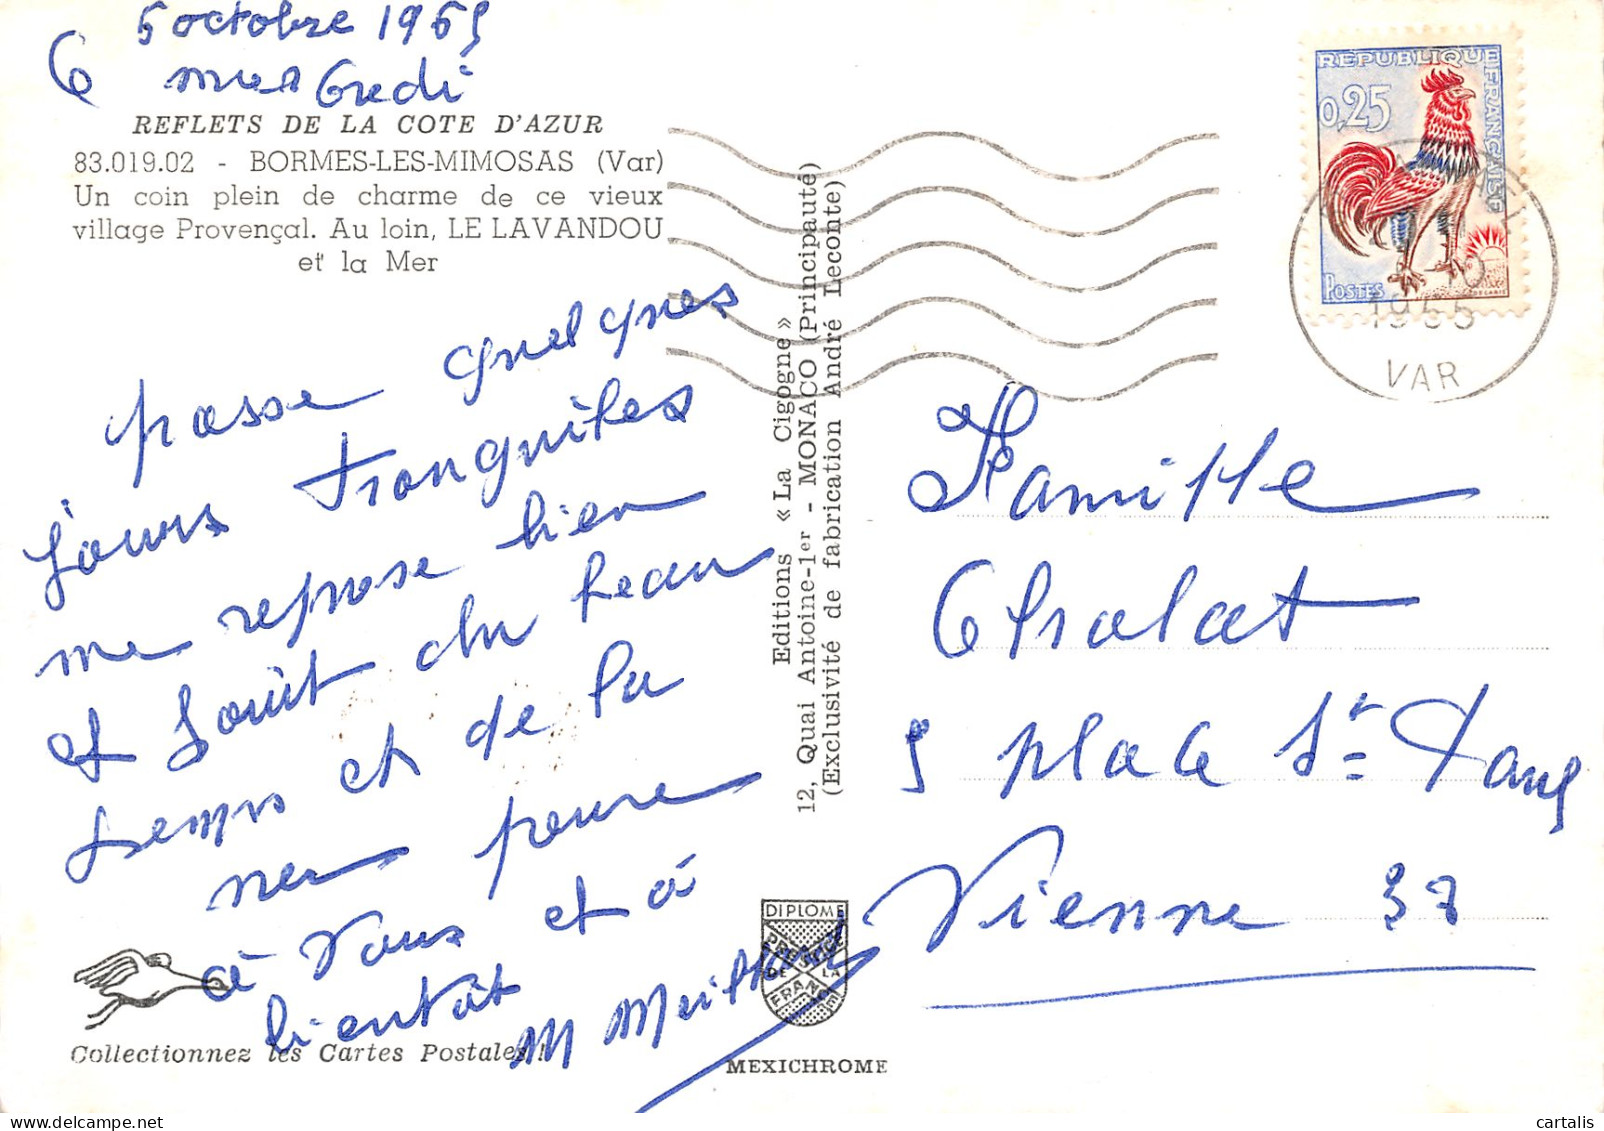 5 octobre 1965
6 mercredi
REFLETS DE LA COTE D'AZUR
83.019.02 - BORMES-LES-MIMOSAS (Var)
Un coin plein de charme de ce vieux
village Provençal. Au loin, LE LAVANDOU
et la Mer
passe quelques
jours tranquiles
me repose bien
et Jouit du beau
temps et de la
mer pense
à vous et à
bientôt
M
Collectionnez les Cartes Postales !
Editions « La Cigogne »
12, Quai Antoine-1er - MONACO (Principauté)
(Exclusivité de fabrication André Leconte)
DIPLOME
PRESTIGE
DE LA
FRANCE
MEXICHROME
REPUBLIQUE FRANÇAISE
0,25
POSTES
DECARIS
1965
VAR
Famille
Cholat
5 place St
Vienne 38
cartalis
delcampe.net